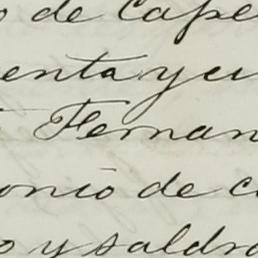 o de cape
enta y cu
Fernan
onio de c
o y saldra